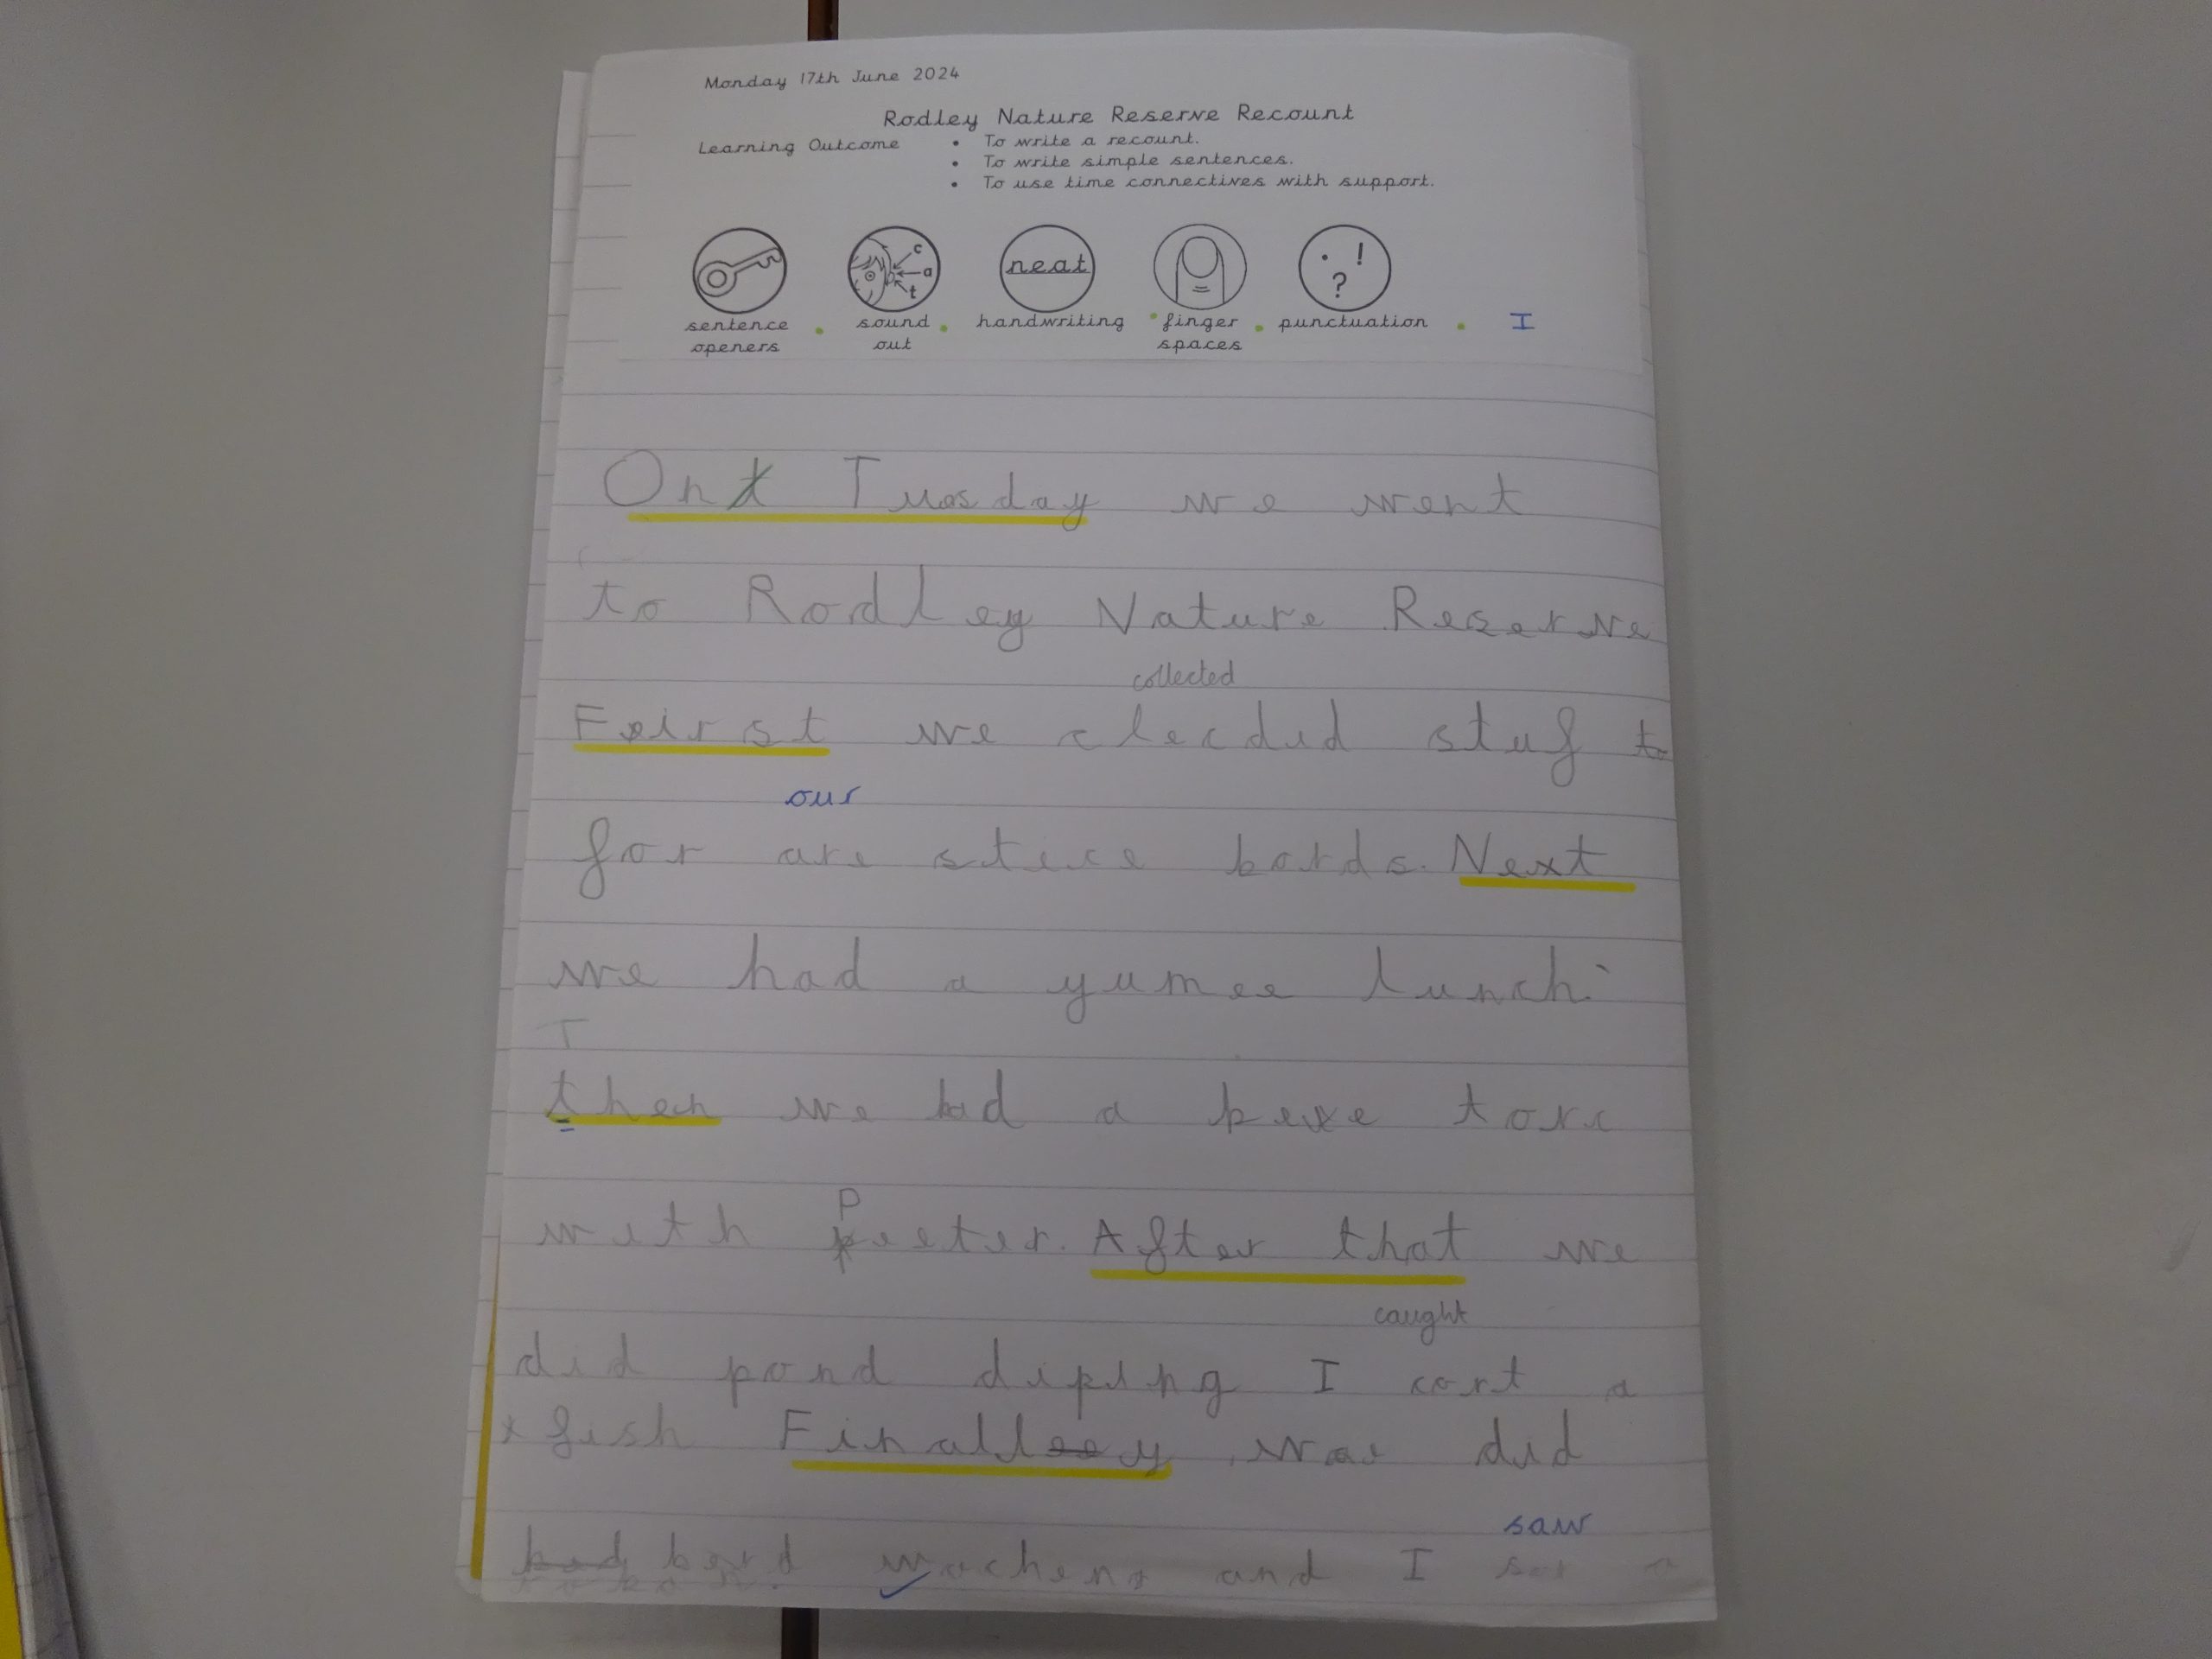 Monday 17th June 2024
Rodley Nature Reserve Recount
Learning Outcome
• To write a recount.
• To write simple sentences.
• To use time connectives with support.
c
a
t
neat
. !
?
sentence openers
sound out
handwriting
finger spaces
punctuation
I
On Tuesday we went
to Rodley Nature Reserve
collected
First we clecdid stuf to
our
for are stice bords. Next
we had a yumee lunch.
T
then we had a tore
P
with peeter. After that we
caught
did pond diping I cort a
fish Finally we did
saw
berd wachens and I sor a